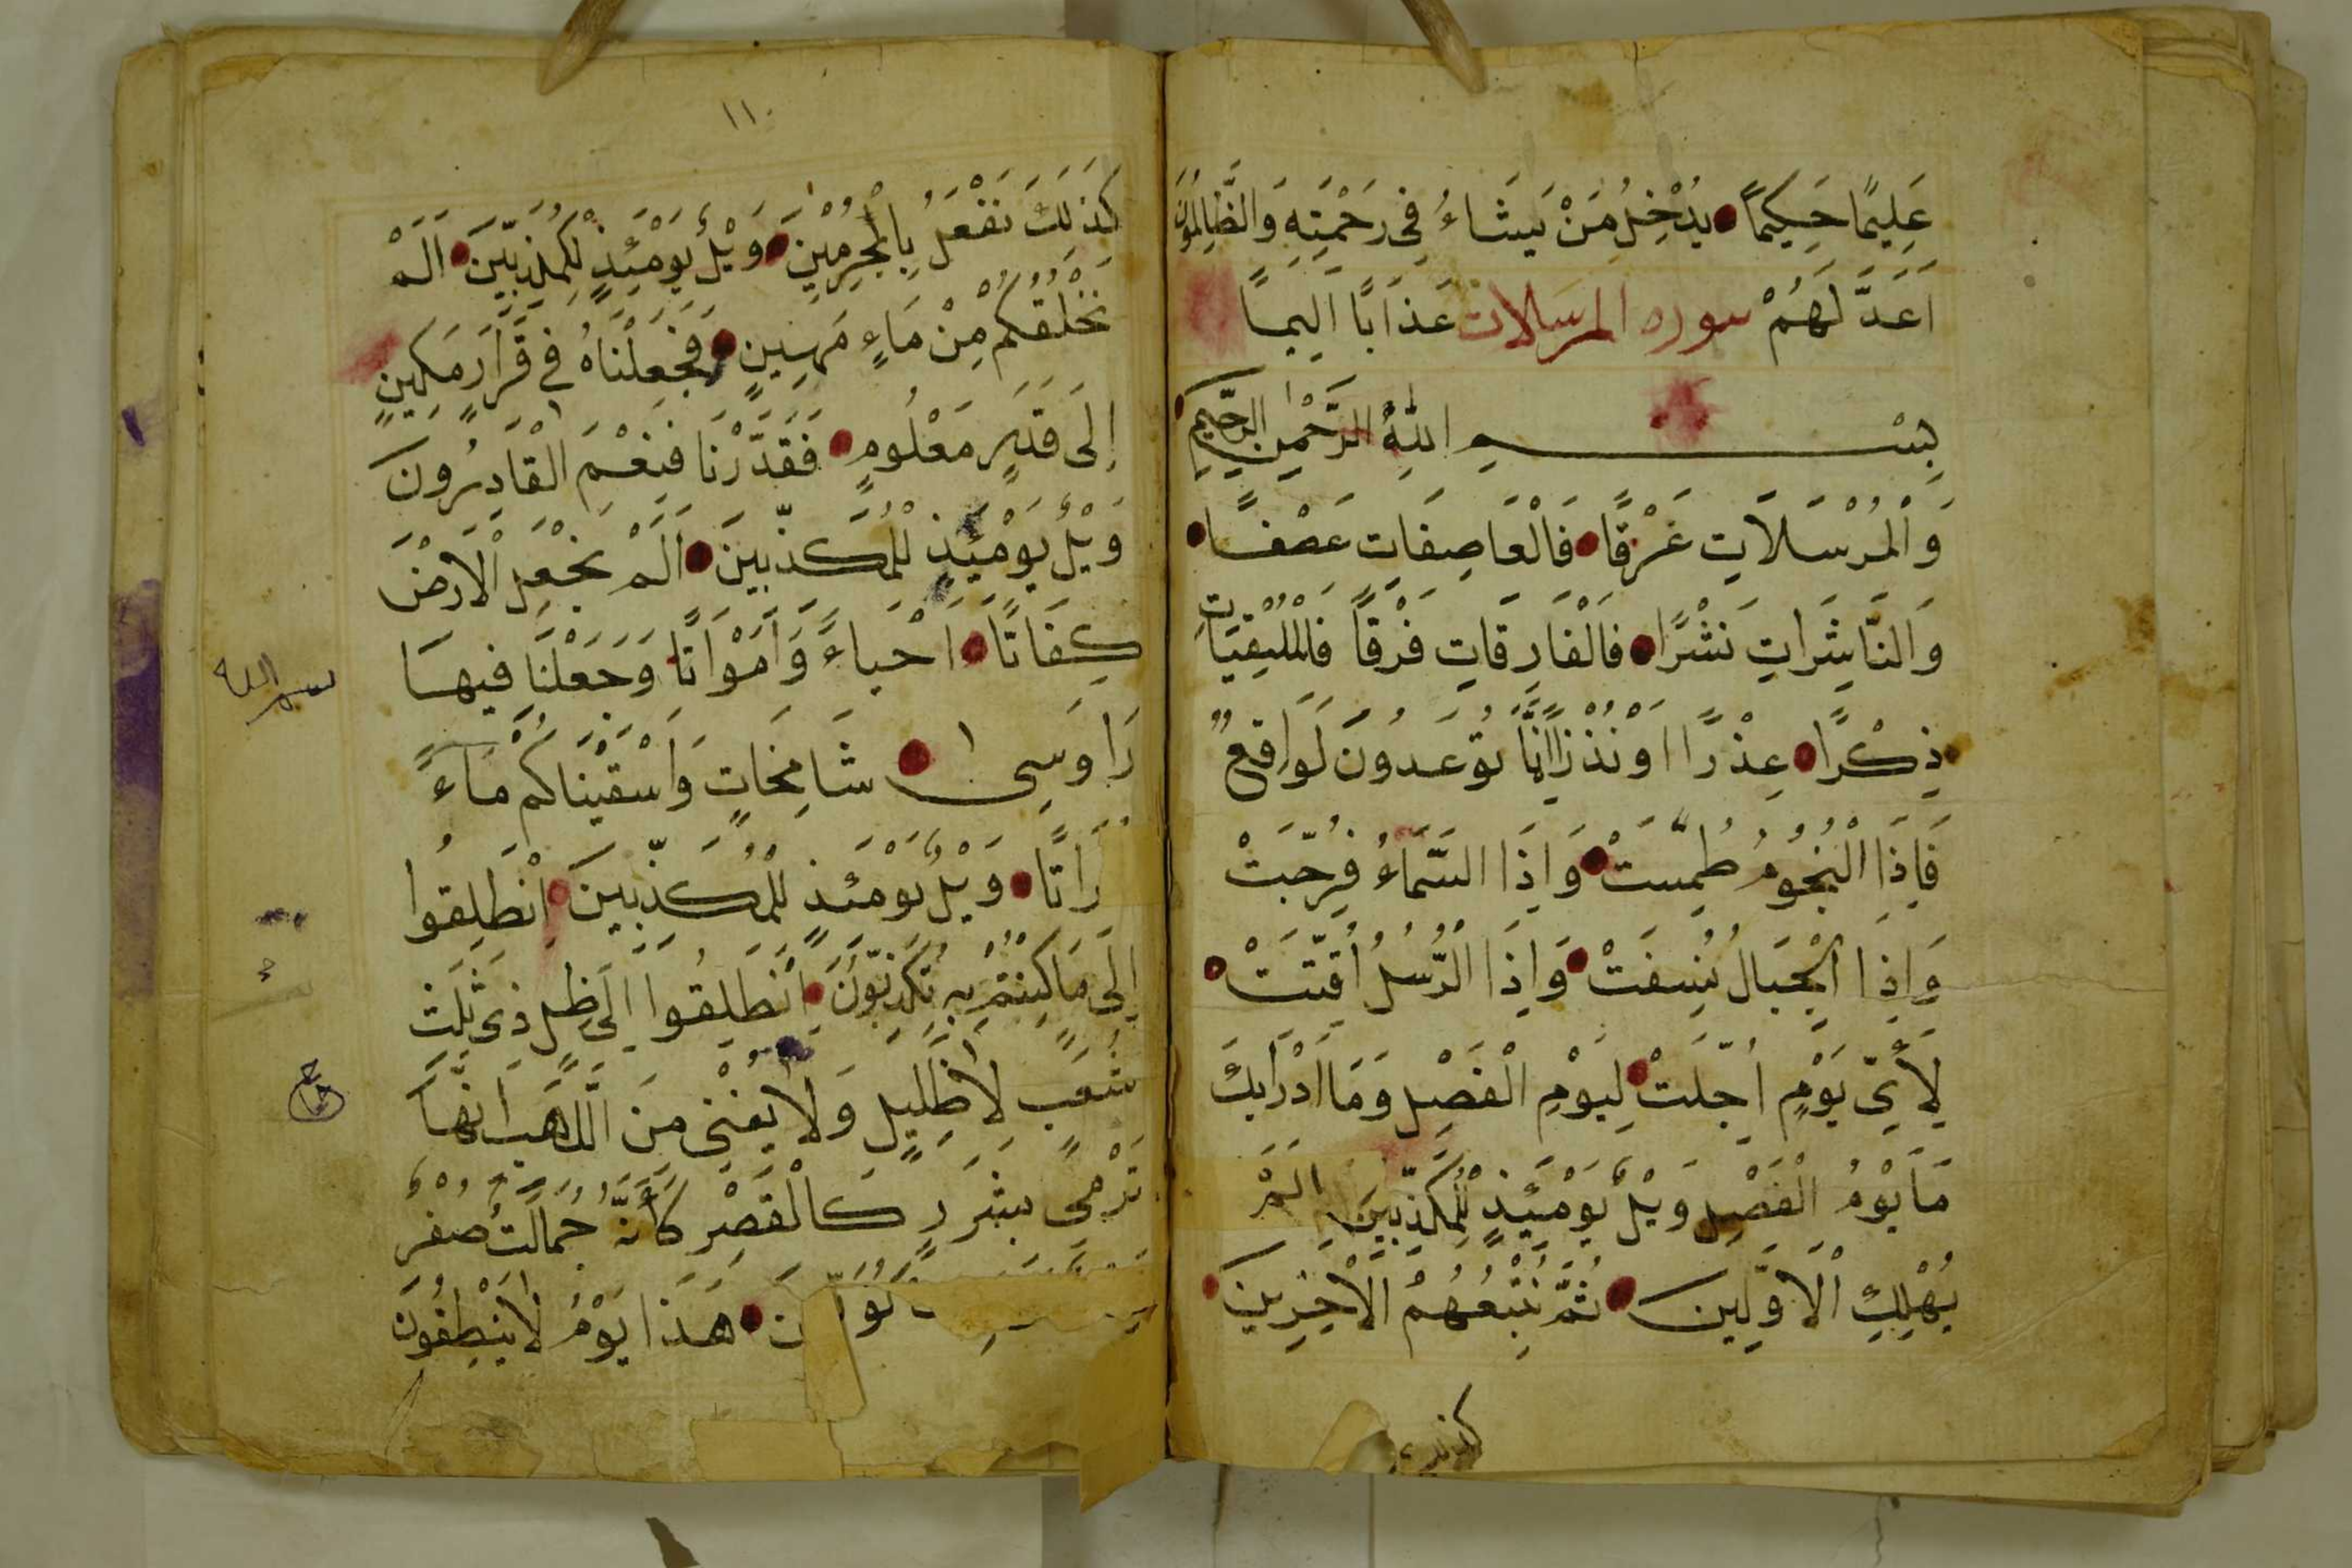 عَلِيمًا حَكِيمًا يُدْخِلُ مَنْ يَشَاءُ فِى رَحْمَتِهِ وَالظَّالِمُونَ
اَعَدَّ لَهُمْ سوره المرسلات عَذَابًا اَلِيمًا
بِسْمِ اللهِ الرَّحْمٰنِ الرَّحِيمِ
وَالْمُرْسَلَاتِ غَرْقًا فَالْعَاصِفَاتِ عَصْفًا
وَالنَّاشِرَاتِ نَشْرًا فَالْفَارِقَاتِ فَرْقًا فَالْمُلْقِيَاتِ
ذِكْرًا عِذْرًا اَوْ نُذْرًا اِنَّمَا تُوعَدُونَ لَوَاقِعٌ
فَاِذَا النُّجُومُ طُمِسَتْ وَاِذَا السَّمَاءُ فُرِّجَتْ
وَاِذَا الْجِبَالُ نُسِفَتْ وَاِذَا الرُّسُلُ اُقِّتَتْ
لِأَىِّ يَوْمٍ اُجِّلَتْ لِيَوْمِ الْفَصْلِ وَمَا اَدْرَايكَ
مَا يَوْمُ الْفَصْلِ وَيْلٌ يَوْمَئِذٍ لِلْمُكَذِّبِينَ اَلَمْ
نُهْلِكِ الْاَوَّلِينَ ثُمَّ نُتْبِعُهُمُ الْاٰخِرِينَ
كذلك
١١٠
كَذَلِكَ نَفْعَلُ بِالْمُجْرِمِينَ وَيْلٌ يَوْمَئِذٍ لِلْمُكَذِّبِينَ اَلَمْ
نَخْلُقْكُمْ مِنْ مَاءٍ مَهِينٍ فَجَعَلْنَاهُ فِى قَرَارٍ مَكِينٍ
اِلَى قَدَرٍ مَعْلُومٍ فَقَدَّرْنَا فَنِعْمَ الْقَادِرُونَ
وَيْلٌ يَوْمَئِذٍ لِلْمُكَذِّبِينَ اَلَمْ نَجْعَلِ الْاَرْضَ
كِفَاتًا اَحْيَاءً وَاَمْوَاتًا وَجَعَلْنَا فِيهَا
رَاوَسِىَ شَامِخَاتٍ وَاَسْقَيْنَاكُمْ مَاءً
رَاتًا وَيْلٌ يَوْمَئِذٍ لِلْمُكَذِّبِينَ اِنْطَلِقُوا
اِلَى مَا كُنْتُمْ بِهِ تُكَذِّبُونَ اِنْطَلِقُوا اِلَى ظِلٍّ ذِى ثَلٰثِ
شُعَبٍ لَا ظَلِيلٍ وَلَا يُغْنِى مِنَ اللَّهَبِ اِنَّهَا
تَرْمِى بِشَرَرٍ كَالْقَصْرِ كَاَنَّهُ جُمَالَتٌ صُفْرٌ
هَذَا يَوْمُ لَا يَنْطِقُونَ
بسم الله